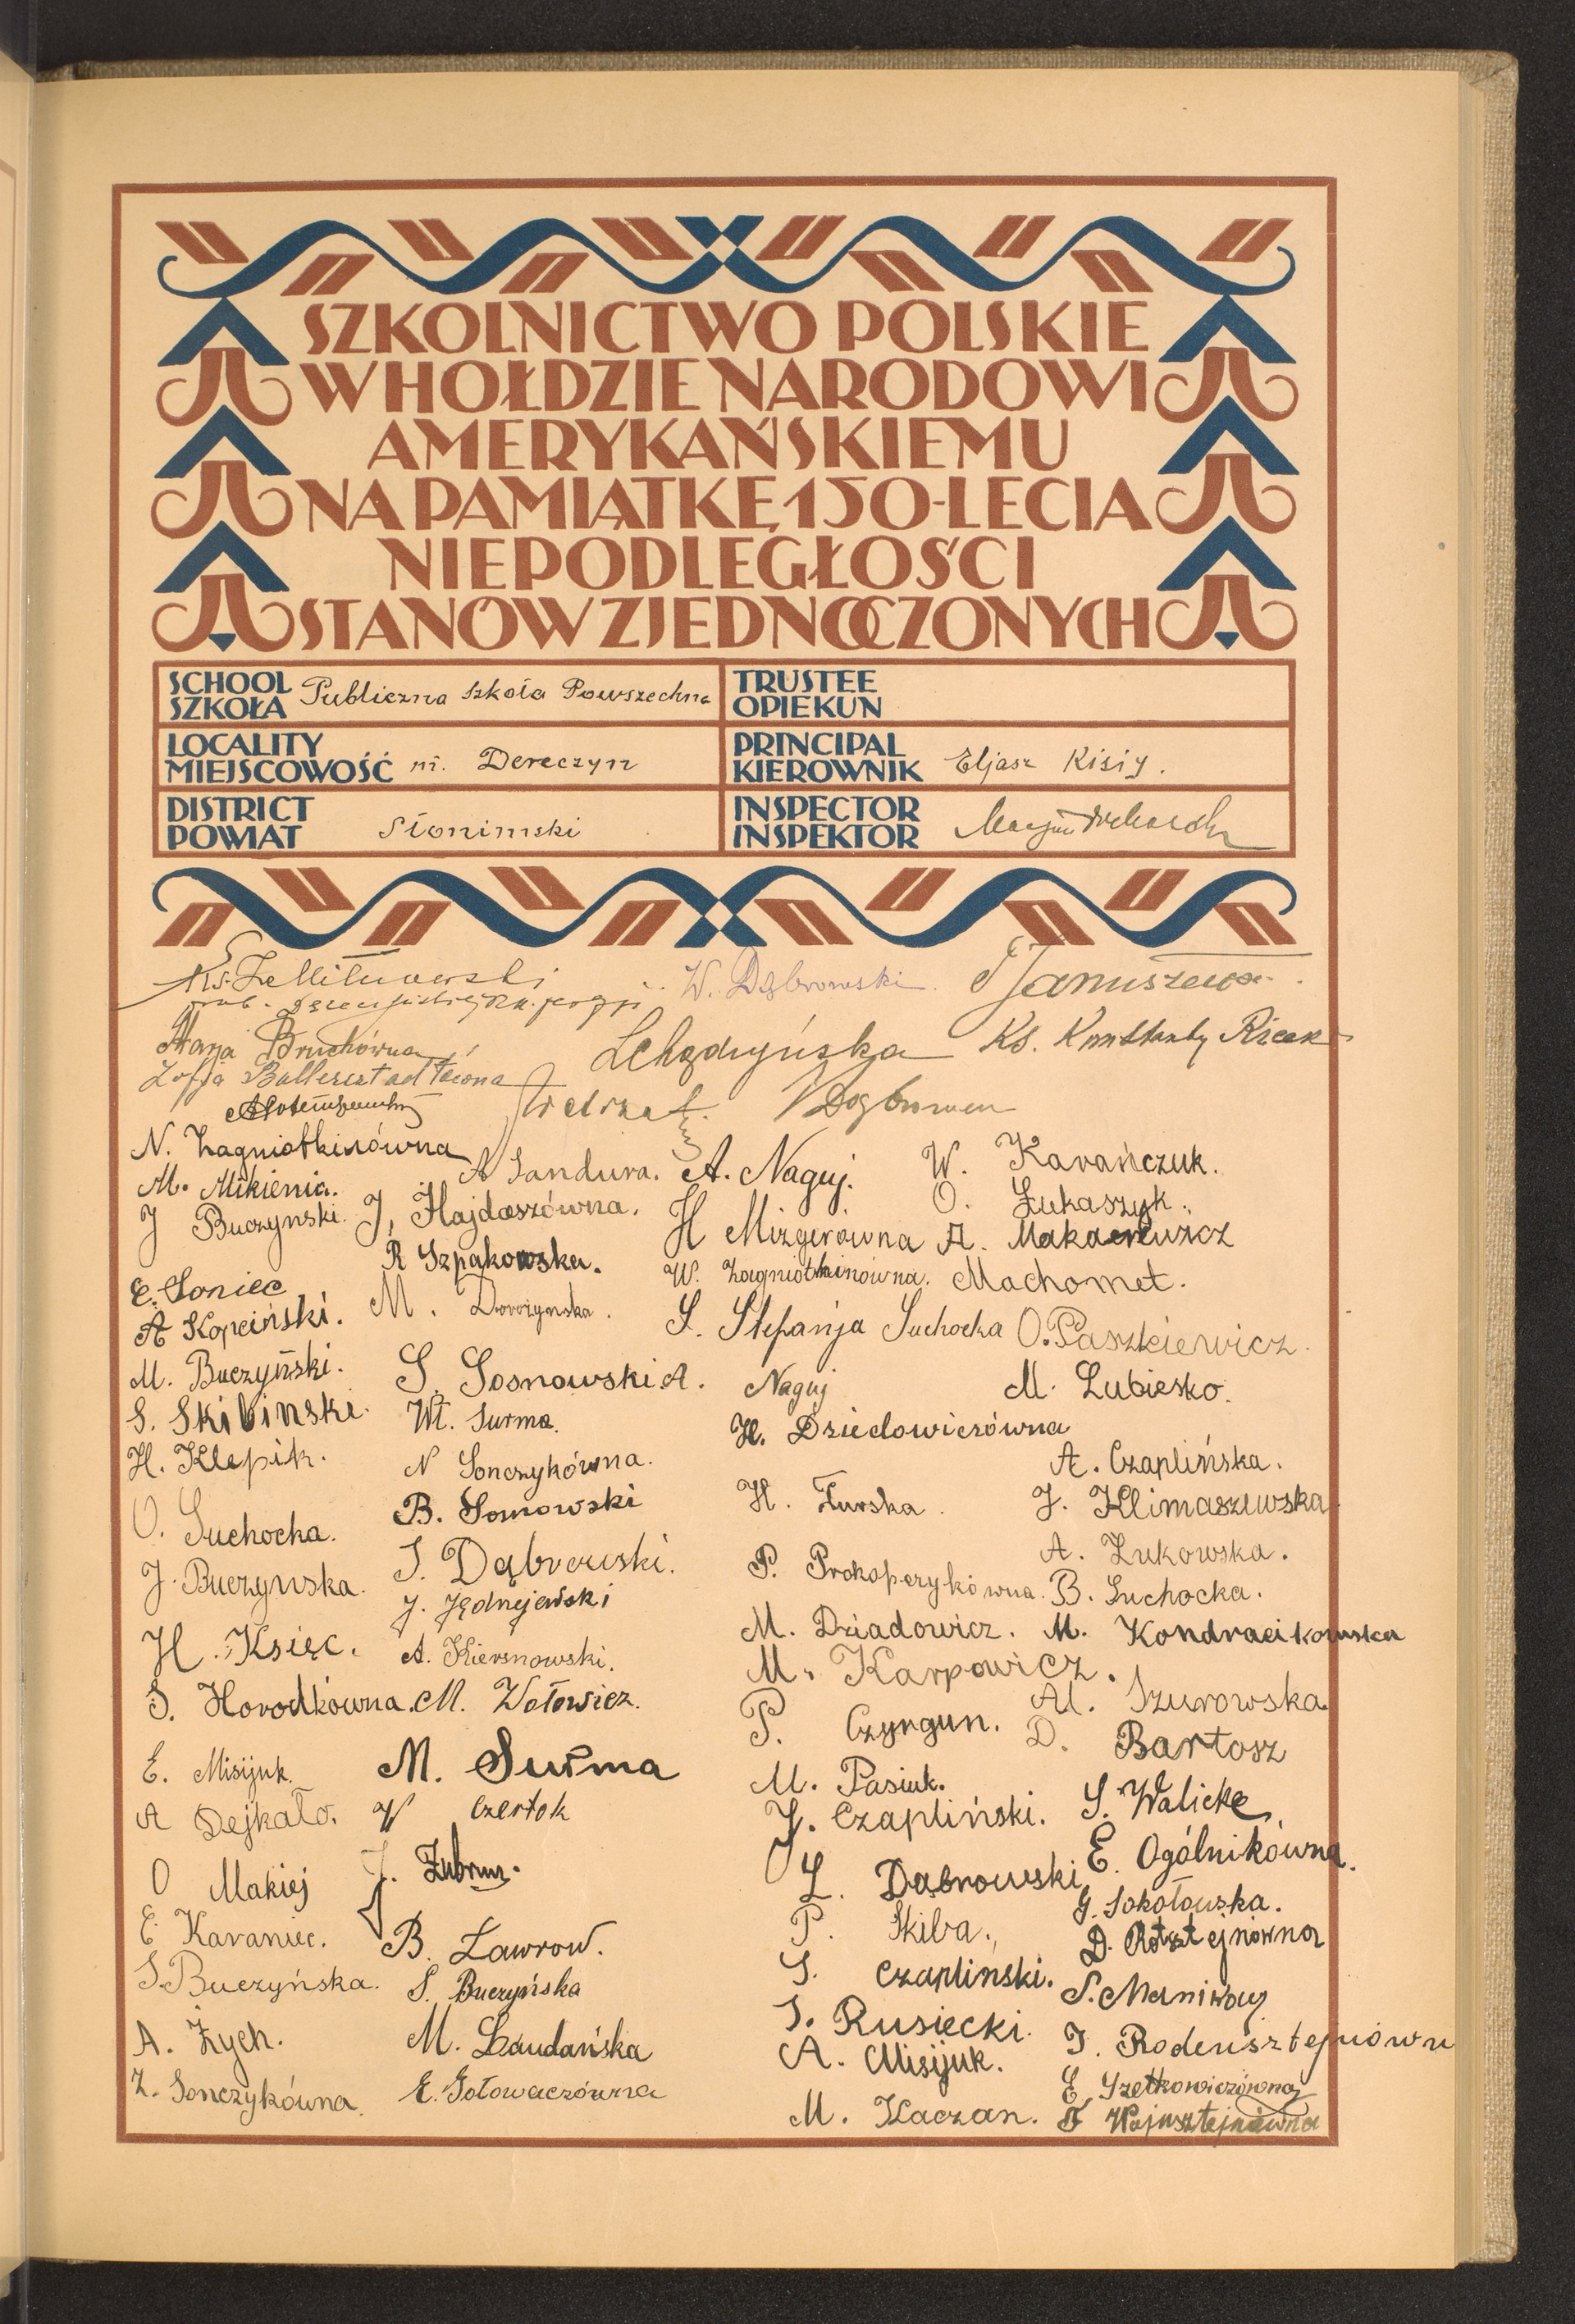 SZKOLNICTWO POLSKIE
W HOŁDZIE NARODOWI
AMERYKAŃSKIEMU
NA PAMIĄTKĘ 150-LECIA
NIEPODLEGŁOŚCI
STANÓW ZJEDNOCZONYCH
SCHOOL
SZKOŁA Publiczna Szkoła Powszechna
TRUSTEE
OPIEKUN
LOCALITY
MIEJSCOWOŚĆ m. Dereczyn
PRINCIPAL
KIEROWNIK Eljasz Kisiy.
DISTRICT
POWIAT Słonimski
INSPECTOR
INSPEKTOR
W. Dąbrowski.
Marja Bruchówna
Ks. Konstanty
Zofja
N. Zagniotkinówna
M. Mikienia.
J Buczynski.
E. Soniec
A Kopciński.
M. Buczyński.
S. Skibinski.
H. Klepik.
O. Suchocka.
J. Buczynska.
H. Księc.
S. Horodkówna.
E. Misijuk.
A Dejkało.
O Makiej
E. Karaniec.
S. Buczyńska.
A. Żych.
Z. Sonczykówna.
A Sandura.
J. Hajdaszówna.
R Szpakowska.
M. Dorożynska.
S. Sosnowski.
Wł. Surma.
N Sonczykówna.
B. Sosnowski
S. Dąbrowski.
J. Jędnejewski
A. Kiersnowski.
M. Wołowicz.
M. Surma
W Czertok
J. Zubrun.
B. Ławrow.
S. Buczyńska
M. Laudańska
E. Gołowaczówna
A. Naguj.
H Mizgerówna
W. Zagniotkinówna.
S. Stefanja Suchocka
A. Naguj
H. Dziedowiczówna
H. Żurska.
P. Prokopczykówna.
M. Dziadowicz.
M. Karpowicz.
P. Czyrgun.
M. Pasiuk.
J. Czapliński.
L. Dąbrowski
P. Skiba.
S. Czaplinski.
S. Rusiecki.
A. Misijuk.
M. Kaczan.
W. Karańczuk.
O. Łukaszyk.
A. Makarewicz
Machomet.
O. Paszkiewicz.
M. Lubiesko.
A. Czaplińska.
J. Klimaszewska.
A. Żukowska.
B. Suchocka.
M. Kondracikowska
M. Szurowska
D. Bartosz
S. Walicke
E. Ogólnikówna.
G. Sokołowska.
D. Rotsztejnówna
S. Maniwoy
J. Rodensztejnówn
E. Szetkowiczówna
F Wajnsztejnówna